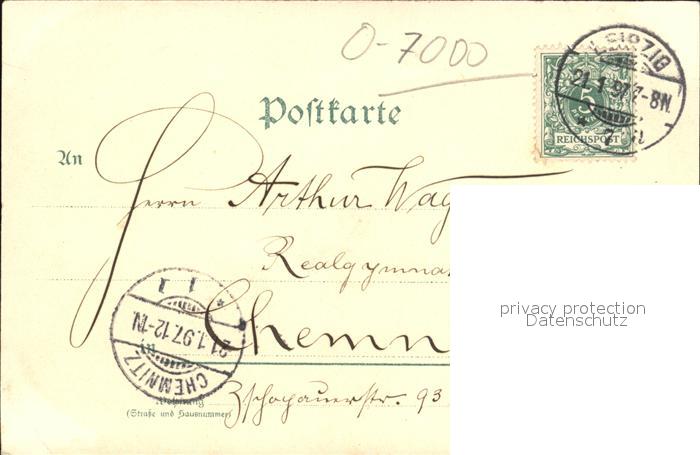 O-7000
LEIPZIG
21.1.97.7-8N.
5
REICHSPOST
Postkarte
An
Herrn Arthur Wag
Realgymna
Chemn
CHEMNITZ
21.1.97.12-1N.
1
Zschopauerstr. 93
Wohnung
(Straße und Hausnummer)
privacy protection
Datenschutz